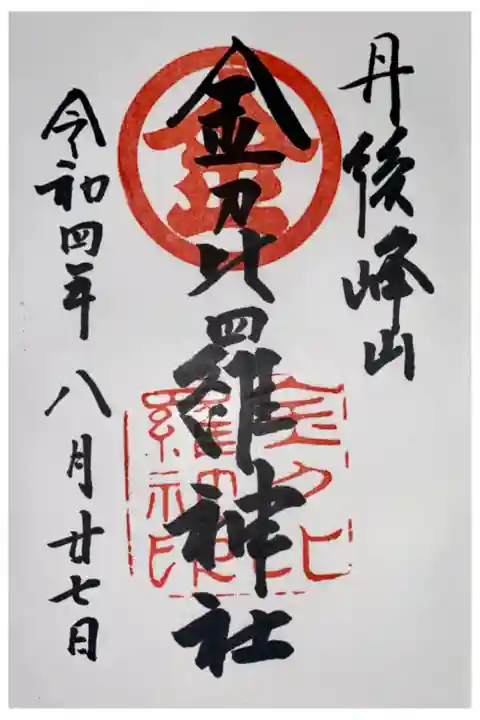 丹後峰山
金刀比羅神社
令和四年 八月廿七日
金
金刀比
羅神
社印